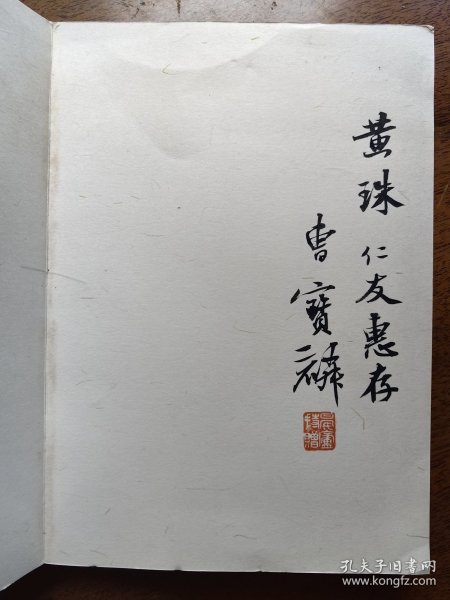 黄珠仁友惠存
曹寶麟
持贈
孔夫子旧书网
www.kongfz.com